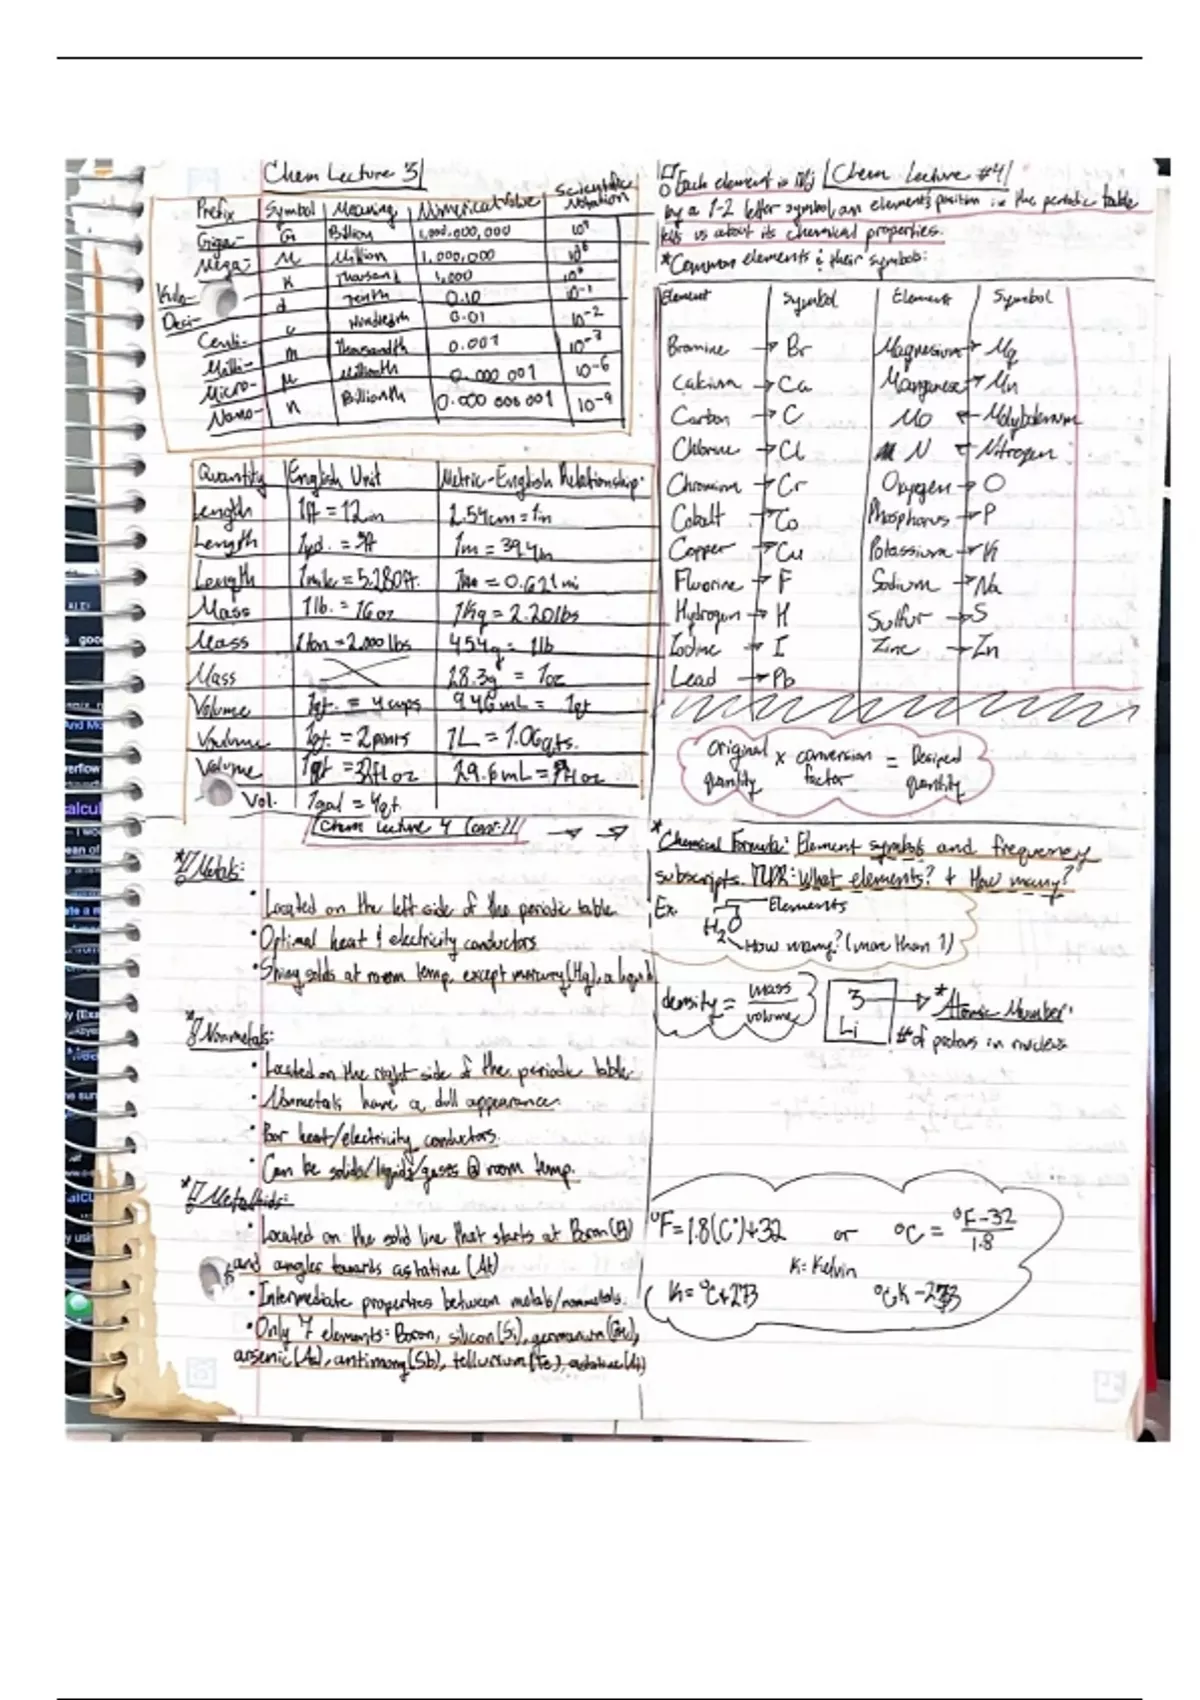 Chem Lecture 3
Prefix Symbol Meaning Numerical value Scientific Notation
Giga- G Billion 1,000,000,000 10⁹
Mega- M Million 1,000,000 10⁶
Kilo- K Thousand 1,000
Deci- d Tenth 0.10 10⁻¹
Centi- c Hundredth 0.01 10⁻²
Milli- m Thousandth 0.001 10⁻³
Micro- μ Millionth 0.000 001 10⁻⁶
Nano- n Billionth 0.000 000 001 10⁻⁹
Quantity English Unit Metric-English Relationship
Length 1ft = 12in 2.54cm = 1in
Length 1yd. = 3ft 1m = 39.4in
Length 1mile = 5,280ft. = 0.621mi
Mass 1lb. = 16oz 1Kg = 2.20lbs
Mass 1ton = 2,000lbs 454g = 1lb
Mass 28.3g = 1oz
Volume 1qt. = 4 cups 946mL = 1qt
Volume 1qt. = 2 pints 1L = 1.06qts.
Volume 1qt = 32fl oz 29.6mL = fl oz
Vol. 1gal = 4qt.
Chem Lecture 4 (cont.)
*Metals:
• Located on the left side of the periodic table.
• Optimal heat & electricity conductors
• Shiny solids at room temp. except mercury (Hg), a liquid
*Nonmetals:
• Located on the right side of the periodic table
• Nonmetals have a dull appearance.
• heat/electricity conductors.
• Can be solids/liquids/gases @ room temp.
*Metalloids:
• Located on the solid line that starts at Boron (B)
and angles towards astatine (At)
• Intermediate properties between metals/nonmetals.
• Only 7 elements: Boron, silicon (Si), germanium (Ge),
arsenic (As), antimony (Sb), tellurium (Te), astatine
Chem Lecture #4
Each element is
by a 1-2 letter symbol, an element's position in the periodic table
tells us about its chemical properties.
*Common elements & their symbols:
Element Symbol Element Symbol
Bromine → Br Magnesium → Mg
Calcium → Ca Manganese → Mn
Carbon → C Mo ← Molybdenum
Chlorine → Cl N ← Nitrogen
Chromium → Cr Oxygen → O
Cobalt → Co Phosphorus → P
Copper → Cu Potassium → K
Fluorine → F Sodium → Na
Hydrogen → H Sulfur → S
Iodine → I Zinc → Zn
Lead → Pb
Original quantity x conversion factor = Desired quantity
*Chemical Formula: Element symbols and frequency
subscripts. TLDR: What elements? + How many?
Ex. Elements
H₂O
How many? (more than 1)
density = mass/volume
3 → *Atomic Number:
Li # of protons in nucleus
°F = 1.8(C°)+32 or °C = °F-32/1.8
K = Kelvin
K = °C+273